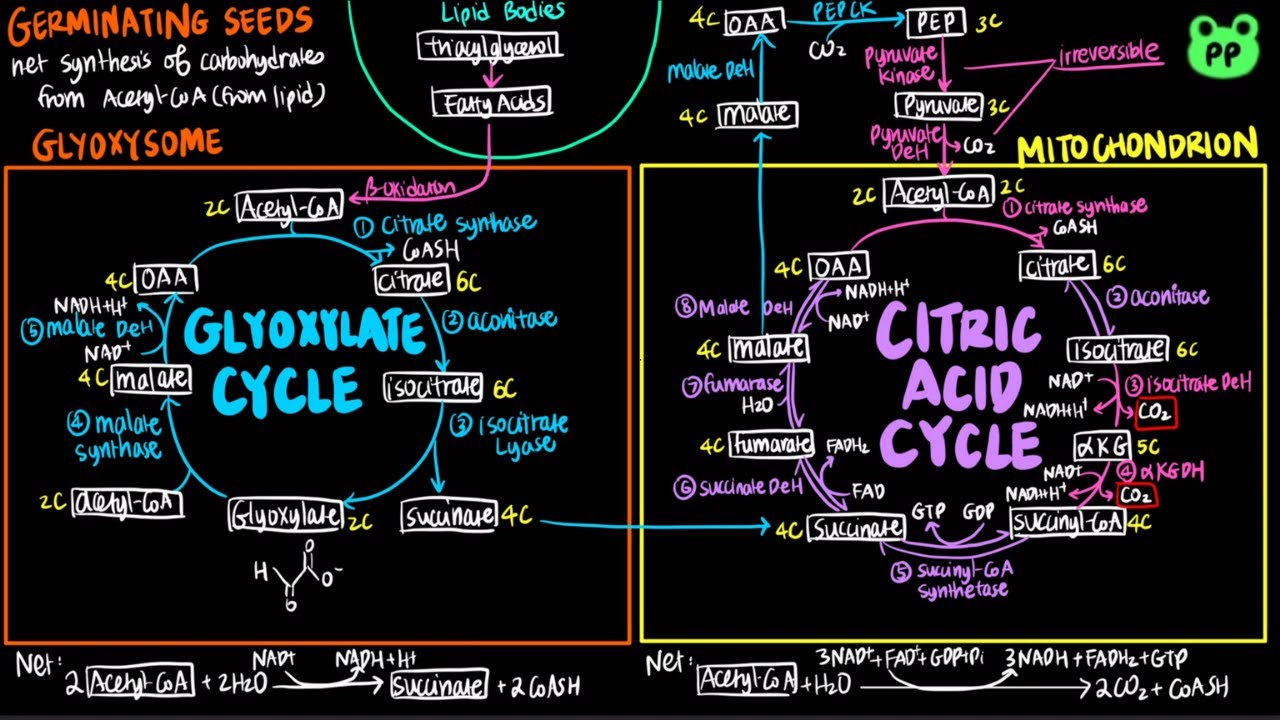 GERMINATING SEEDS
net synthesis of carbohydrates
from Acetyl-CoA (from lipid)
GLYOXYSOME
Lipid Bodies
triacylglycerol
Fatty Acids
β-oxidation
4C OAA
PEPCK
CO2
PEP 3C
malate DeH
4C malate
Pyruvate
kinase
irreversible
Pyruvate 3C
Pyruvate
DeH
CO2
PP
MITOCHONDRION
2C Acetyl-CoA
① citrate synthase
CoASH
4C OAA
citrate 6C
NADH+H+
⑤ malate DeH
NAD+
② aconitase
GLYOXYLATE
CYCLE
4C malate
isocitrate 6C
④ malate
synthase
③ isocitrate
Lyase
2C acetyl-CoA
Glyoxylate 2C
succinate 4C
H
O
O-
O
2C Acetyl-CoA 2C
① citrate synthase
CoASH
4C OAA
citrate 6C
NADH+H+
⑧ Malate DeH
NAD+
② aconitase
CITRIC
ACID
CYCLE
4C malate
isocitrate 6C
⑦ fumarase
H2O
NAD+
③ isocitrate DeH
NADH+H+
CO2
4C fumarate
FADH2
αKG 5C
⑥ succinate DeH
FAD
NAD+
④ αKGDH
NADH+H+
CO2
4C succinate
GTP
GDP
succinyl-CoA 4C
⑤ succinyl-CoA
synthetase
Net:
2 Acetyl-CoA + 2H2O
NAD+
NADH+H+
succinate + 2 CoASH
Net:
Acetyl-CoA + H2O
3NAD+ + FAD+ + GDP+Pi
3NADH + FADH2 + GTP
2CO2 + CoASH